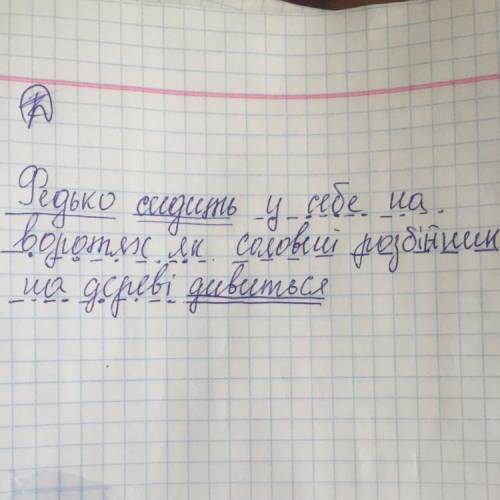 Федько сидить у себе на
воротях як соловей розбійник
на дереві дивиться